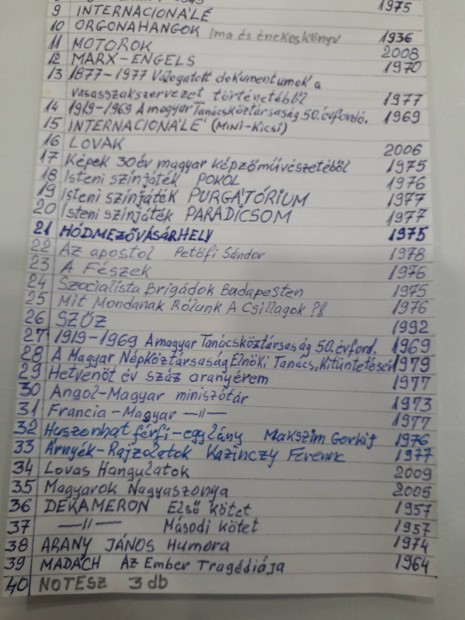 9 INTERNACIONÁLÉ 1975
10 ORGONAHANGOK Ima és énekeskönyv 1936
11 MOTOROK 2008
12 MARX-ENGELS 1970
13 1877-1977 Válogatott dokumentumok a
vasasszakszervezet történetéből 1977
14 1919-1969 A magyar Tanácsköztársaság 50. évforduló. 1969
15 INTERNACIONÁLÉ (Mini-Kicsi)
16 LOVAK 2006
17 Képek 30 év magyar képzőművészetéből 1975
18 Isteni színjáték POKOL 1976
19 Isteni színjáték PURGATÓRIUM 1977
20 Isteni színjáték PARADICSOM 1977
21 HÓDMEZŐVÁSÁRHELY 1975
22 Az apostol Petőfi Sándor 1978
23 A Fészek 1976
24 Szocialista Brigádok Budapesten 1975
25 Mit Mondanak Rólunk A Csillagok ?! 1976
26 SZŰZ 1992
27 1919-1969 A magyar Tanácsköztársaság 50. évford. 1969
28 A Magyar Népköztársaság Elnöki Tanács. Kitüntetései 1979
29 Hetvenöt év száz aranyérem 1977
30 Angol-Magyar miniszótár 1973
31 Francia-Magyar —11— 1977
32 Huszonhat férfi-egy lány Makszim Gorkij 1976
33 Árnyék-Rajzolatok Kazinczy Ferenc 1977
34 Lovas Hangulatok 2009
35 Magyarok Nagyaszonya 2005
36 DEKAMERON Első kötet 1957
37 —11— Másodi kötet 1957
38 ARANY JÁNOS Humora 1974
39 MADÁCH Az Ember Tragédiája 1964
40 NOTESZ 3 db